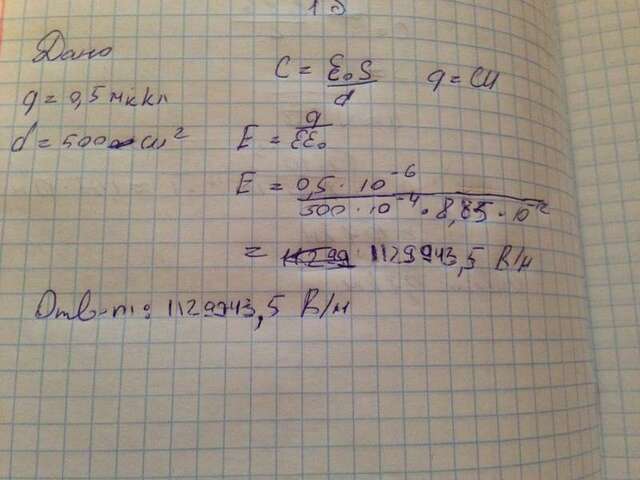 1.2)
Дано
q = 0,5 мккл
d = 500 см²
C = ε₀S/d   q = CU
E = q/εε₀
E = 0,5 · 10⁻⁶ / 500 · 10⁻⁴ · 8,85 · 10⁻¹² =
= 112994 1129943,5 В/м
Ответ: 1129943,5 В/м